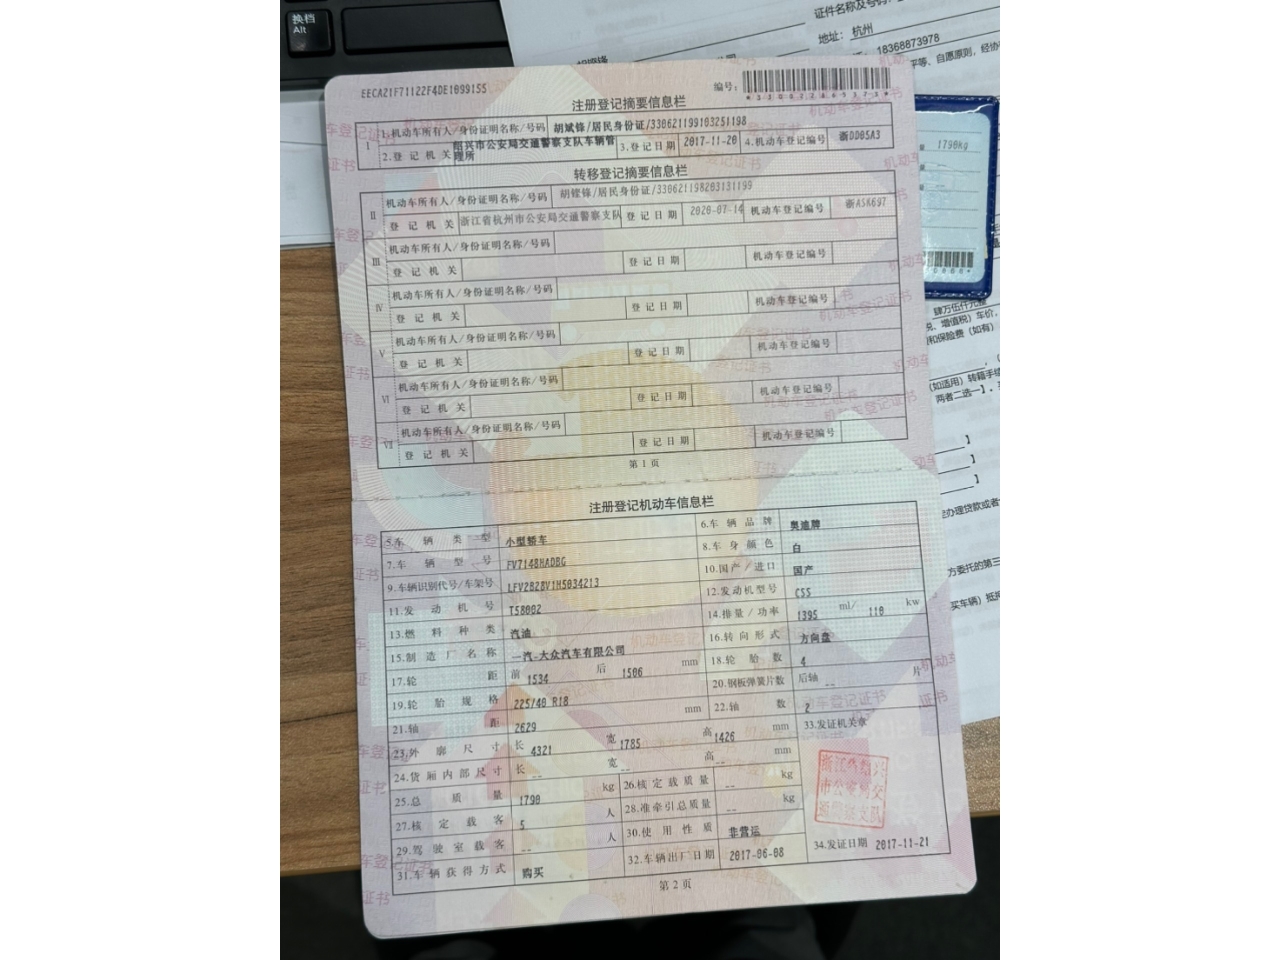 换档
Alt
证件名称及号码
地址：杭州
18368873978
平等、自愿原则，经协
EECA21F71122F4DE1099155
编号：
注册登记摘要信息栏
Ⅰ 1.机动车所有人/身份证明名称/号码 胡斌锋/居民身份证/330621199103251198
2.登记机关 绍兴市公安局交通警察支队车辆管理所 3.登记日期 2017-11-20 4.机动车登记编号 浙DD05A3
转移登记摘要信息栏
Ⅱ 机动车所有人/身份证明名称/号码 胡铿锋/居民身份证/330621198203131199
登记机关 浙江省杭州市公安局交通警察支队 登记日期 2020-07-14 机动车登记编号 浙ASK697
Ⅲ 机动车所有人/身份证明名称/号码
登记机关 登记日期 机动车登记编号
Ⅳ 机动车所有人/身份证明名称/号码
登记机关 登记日期 机动车登记编号
Ⅴ 机动车所有人/身份证明名称/号码
登记机关 登记日期 机动车登记编号
Ⅵ 机动车所有人/身份证明名称/号码
登记机关 登记日期 机动车登记编号
Ⅶ 机动车所有人/身份证明名称/号码
登记机关 登记日期 机动车登记编号
第1页
注册登记机动车信息栏
5.车辆类型 小型轿车 6.车辆品牌 奥迪牌
7.车辆型号 FV7148HADBG 8.车身颜色 白
9.车辆识别代号/车架号 LFV2B28V1H5034213 10.国产/进口 国产
11.发动机号 T58002 12.发动机型号 CSS
13.燃料种类 汽油 14.排量/功率 1395 ml/ 110 kw
15.制造厂名称 一汽-大众汽车有限公司 16.转向形式 方向盘
17.轮距 前 1534 后 1506 mm 18.轮胎数 4
19.轮胎规格 225/40 R18 20.钢板弹簧片数 后轴 -- 片
21.轴距 2629 mm 22.轴数 2
23.外廓尺寸 长 4321 宽 1785 高 1426 mm 33.发证机关章
24.货厢内部尺寸 长 -- 宽 -- 高 -- mm
25.总质量 1790 kg 26.核定载质量 -- kg
27.核定载客 5 人 28.准牵引总质量 -- kg
29.驾驶室载客 -- 人 30.使用性质 非营运
31.车辆获得方式 购买 32.车辆出厂日期 2017-06-08 34.发证日期 2017-11-21
第2页
1790kg
肆万伍仟元整
税、增值税）车价、
和保险费（如有）
（如适用）转籍手续
两者二选一】
办理贷款或者
方委托的第三
买车辆）抵押